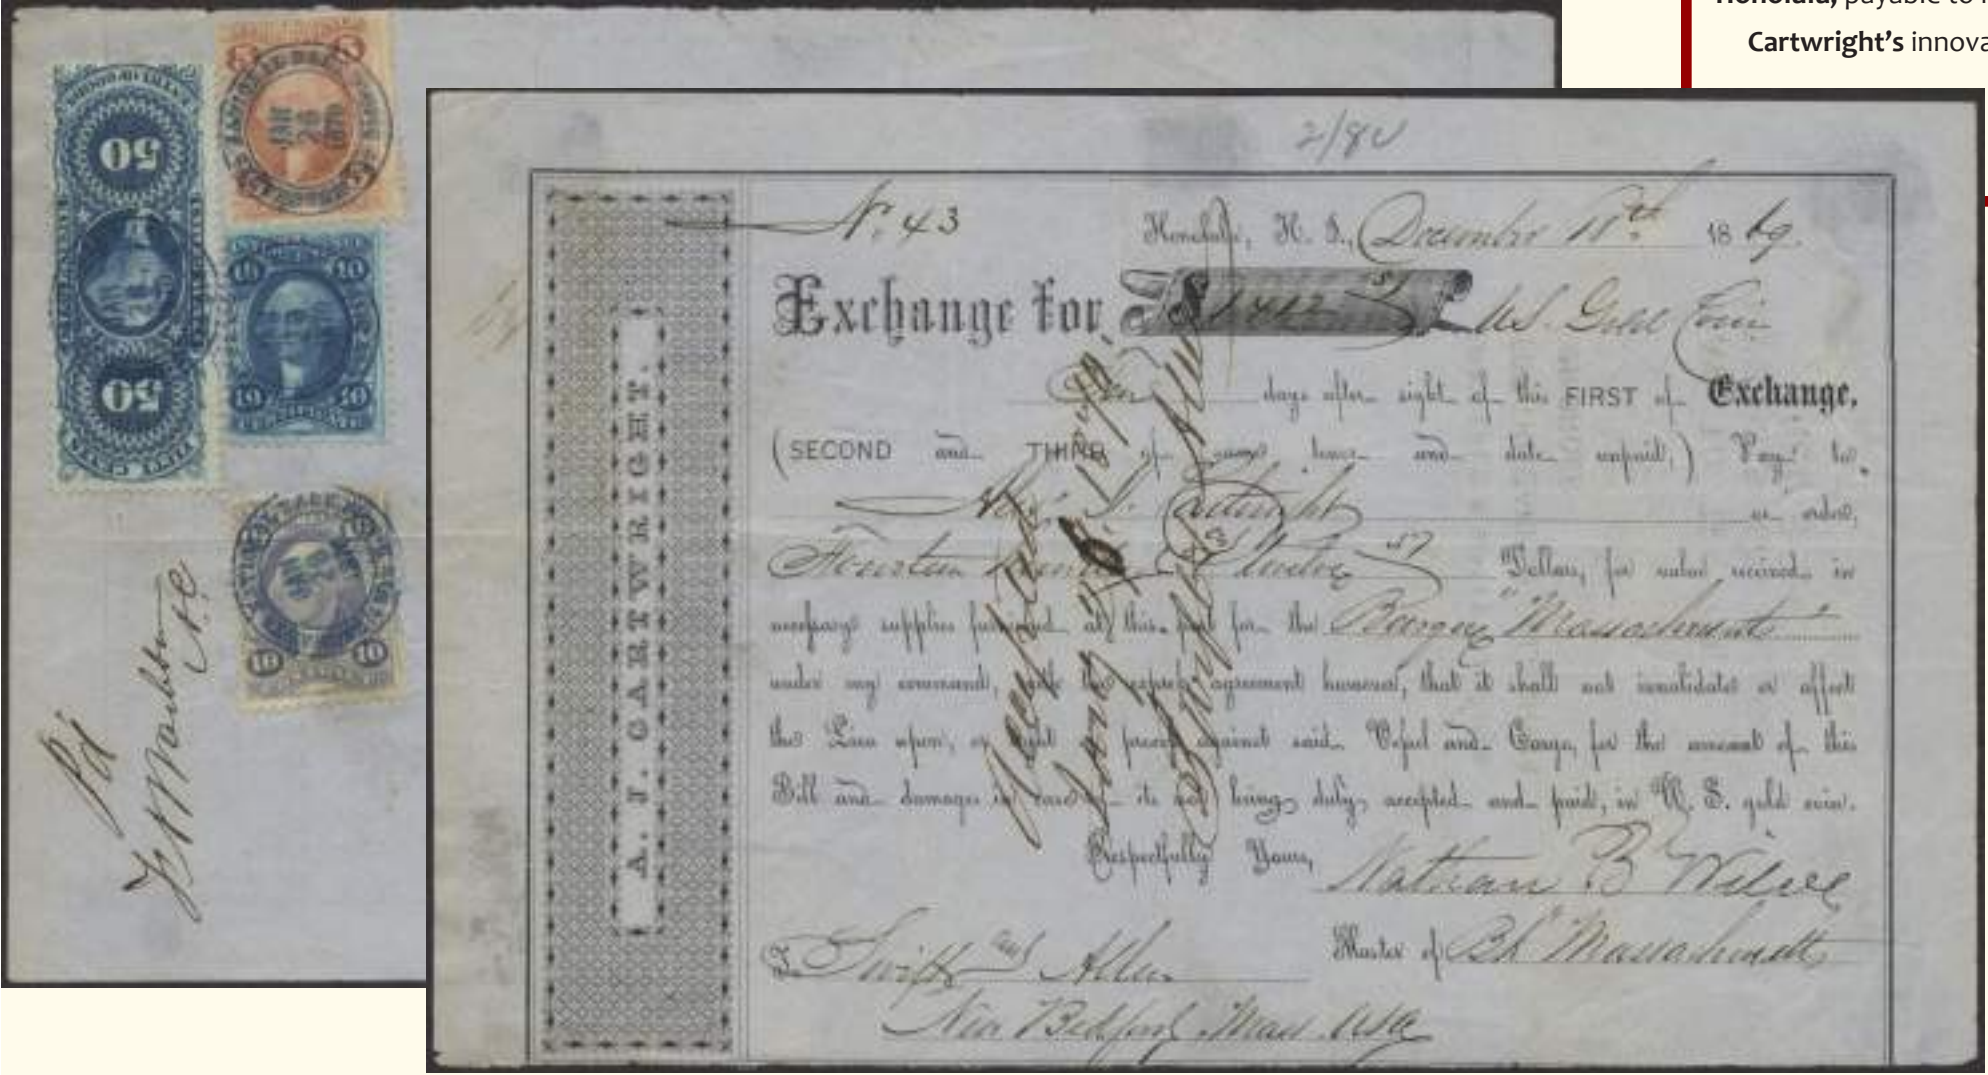 Honolulu, payable to
Cartwright's innova
50
50
FIFTY CENTS
10 10
10 10
JAN
28
1870
10 10
Pd
2/80
A. J. CARTWRIGHT.
No. 43 Honolulu, H. I., December 18th 1869.
Exchange for $1412 57 U.S. Gold Coin
Ten days after sight of this FIRST of Exchange,
(SECOND and THIRD of same tenor and date unpaid,) Pay to
Cartwright or order,
Fourteen Hundred & Twelve 57 Dollars, for value received in
necessary supplies furnished at this port for the Barque "Massachusetts"
under my command, with the express agreement however, that it shall not invalidate or affect
the Lien upon, or right to proceed against said Vessel and Cargo, for the amount of this
Bill and damages in case of its not being duly accepted and paid, in U. S. gold coin.
Respectfully Yours,
Nathan B Wilcox
Master of Bk "Massachusetts"
To Swift and Allen
New Bedford Mass. USA
Accepted
Swift & Allen